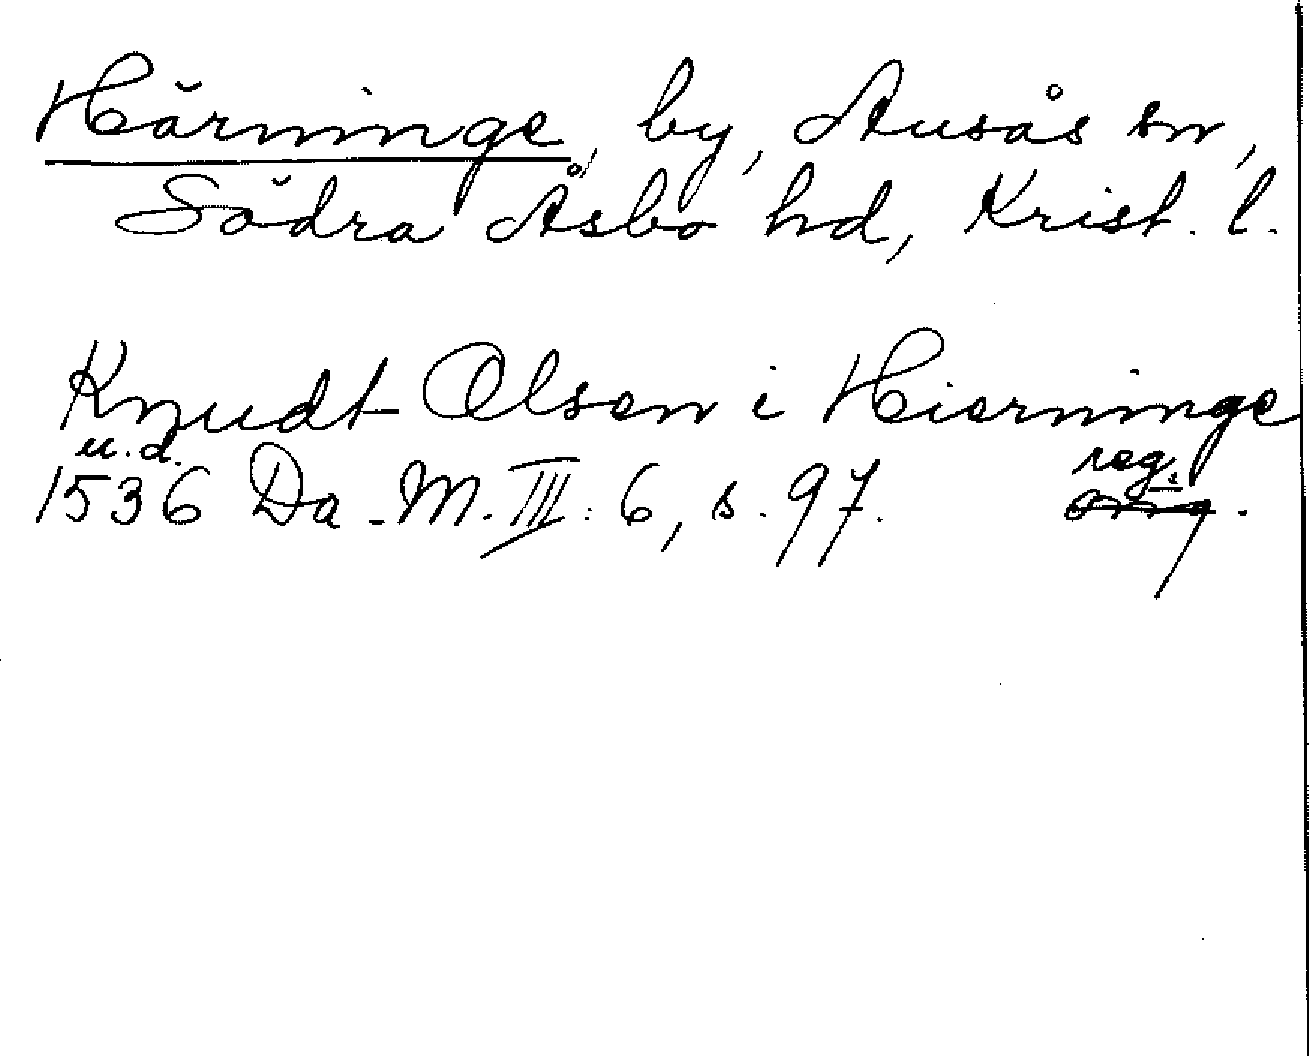 Härninge, by, Ausås sn,
Södra Åsbo hd, Krist. l.
Knudt Olsen i Hierninge
u.d. reg.
1536 Da.M. III: 6, s. 97. orig.